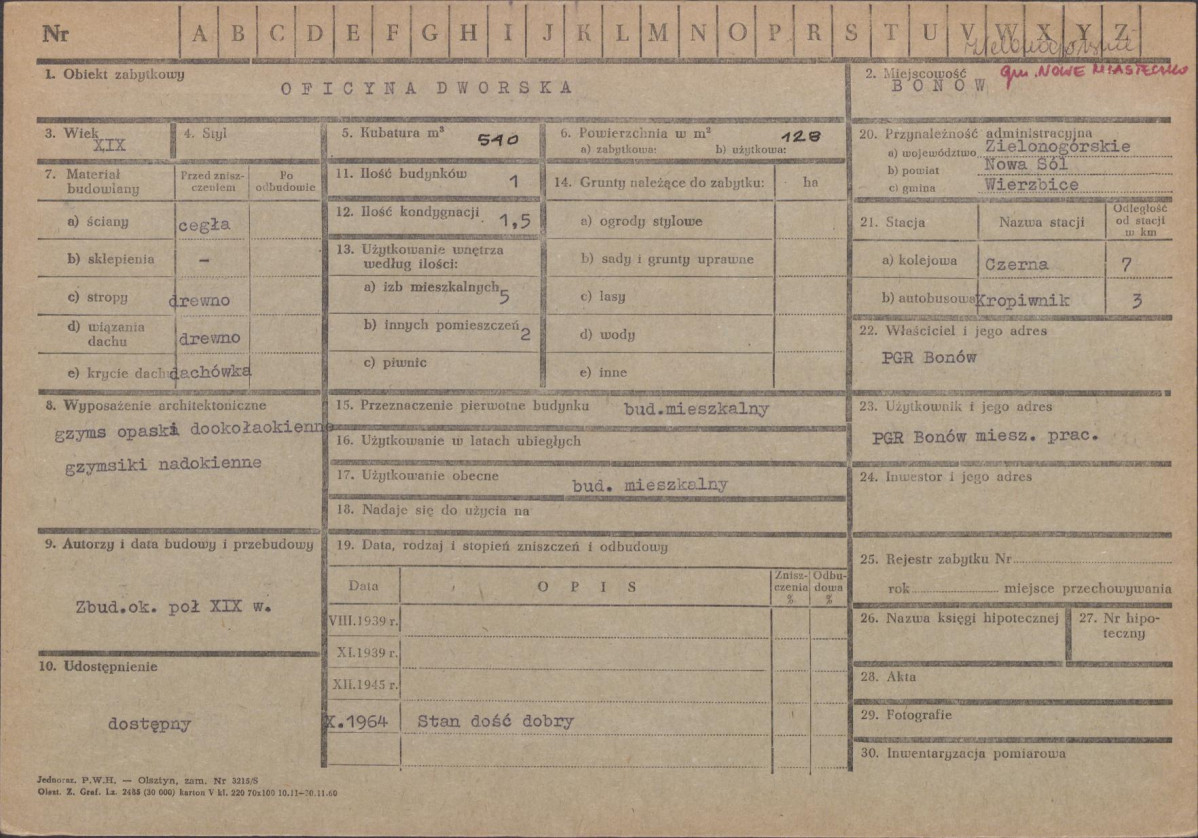 Nr A B C D E F G H I J K L M N O P R S T U V W X Y Z
1. Obiekt zabytkowy
OFICYNA DWORSKA
2. Miejscowość
gm. NOWE MIASTECZKO
BONÓW
3. Wiek
XIX
4. Styl
5. Kubatura m³ 510
6. Powierzchnia w m² 128
a) zabytkowa: b) użytkowa:
7. Materiał budowlany
Przed zniszczeniem
Po odbudowie
a) ściany cegła
b) sklepienia –
c) stropy drewno
d) wiązania dachu drewno
e) krycie dachu dachówka
8. Wyposażenie architektoniczne
gzyms opaski dookołaokienne
gzymsiki nadokienne
9. Autorzy i data budowy i przebudowy
Zbud.ok. poł XIX w.
10. Udostępnienie
dostępny
11. Ilość budynków 1
12. Ilość kondygnacji 1,5
13. Użytkowanie wnętrza
według ilości:
a) izb mieszkalnych 5
b) innych pomieszczeń 2
c) piwnic
14. Grunty należące do zabytku: ha
a) ogrody stylowe
b) sady i grunty uprawne
c) lasy
d) wody
e) inne
15. Przeznaczenie pierwotne budynku bud.mieszkalny
16. Użytkowanie w latach ubiegłych
17. Użytkowanie obecne bud. mieszkalny
18. Nadaje się do użycia na
19. Data, rodzaj i stopień zniszczeń i odbudowy
Data OPIS Zniszczenia % Odbudowa %
VIII.1939 r.
XI.1939 r.
XII.1945 r.
X.1964 Stan dość dobry
20. Przynależność administracyjna
a) województwo Zielonogórskie
b) powiat Nowa Sól
c) gmina Wierzbice
21. Stacja Nazwa stacji Odległość od stacji w km
a) kolejowa Czerna 7
b) autobusowa Kropiwnik 3
22. Właściciel i jego adres
PGR Bonów
23. Użytkownik i jego adres
PGR Bonów miesz. prac.
24. Inwestor i jego adres
25. Rejestr zabytku Nr
rok miejsce przechowywania
26. Nazwa księgi hipotecznej
27. Nr hipoteczny
28. Akta
29. Fotografie
30. Inwentaryzacja pomiarowa
Jednoraz. P.W.H. — Olsztyn, zam. Nr 3215/S
Olszt. Z. Graf. Lz. 2485 (30 000) karton V kl. 220 70x100 10.11—30.11.60